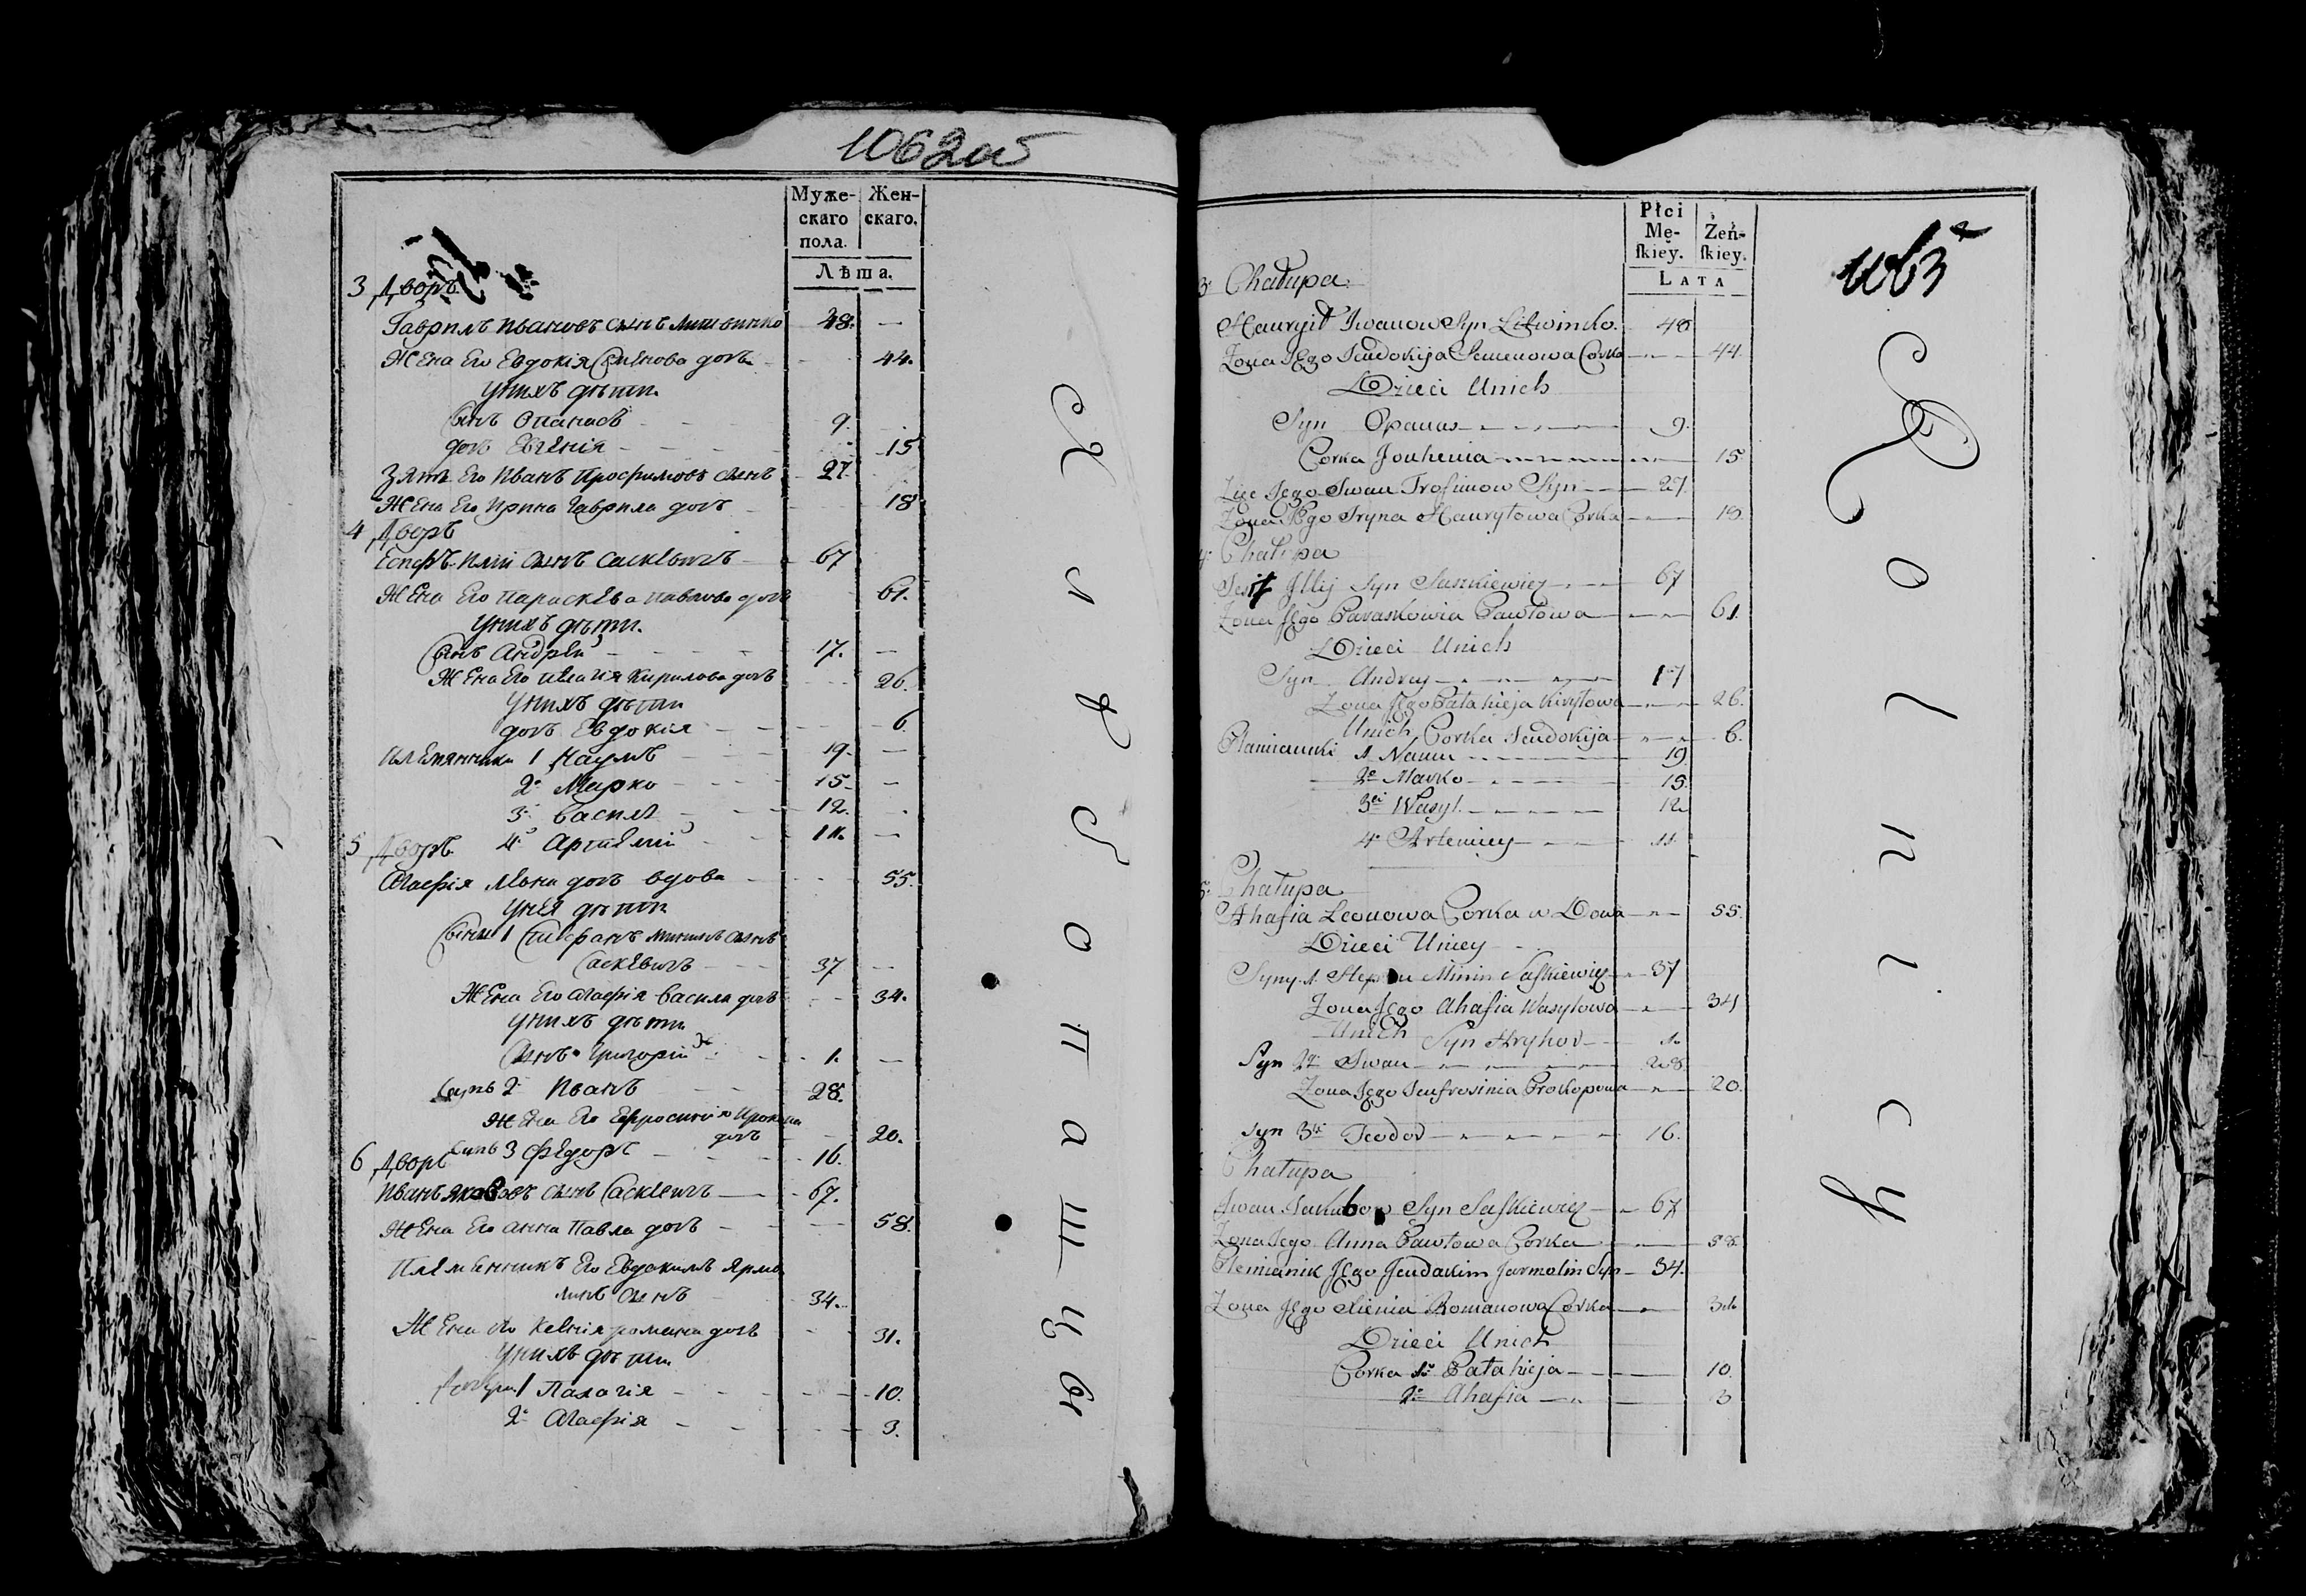 1062об
Муже-
скаго
пола.
Жен-
скаго.
Лѣта.
3 Дворъ
Гаврилъ Ивановъ сынъ Литвинко 48. —
Жена Его Евдокія Семѣнова дочь 44.
У нихъ дѣти
Сынъ Опанасъ 9.
дочь Евгенія 15
Зять Его Иванъ Трофимовъ сынъ 27.
Жена Его Ирина Гаврила дочь 18
4 Дворъ
Есифъ Илій сынъ Саскевичъ 67
Жена Его Параскева Павлова дочь 61.
У нихъ дѣти.
Сынъ Андрей 17. —
Жена Его Пелагія Кирилова дочь 26.
У нихъ дѣти
дочь Евдокія 6.
Племянники 1 Наумъ 19. —
2. Марко 15. —
3. Василь 12.
4. Артемій 11. —
5 Дворъ
Агафія Леона дочь вдова 55.
У нея дѣти
Сыны 1 Стефанъ Мининъ сынъ
Саскевичъ 37 —
Жена Его Агафія Васила дочь 34.
У нихъ дѣти
Сынъ Григорій 1. —
Сынъ 2. Иванъ 28.
Жена Его Ефросинія Прокопа
дочь 20.
Сынъ 3 Федоръ 16.
6 Дворъ
Иванъ Яковъ сынъ Саскевичъ 67.
Жена Его Анна Павла дочь 58.
Племянникъ Его Евдокимъ Ярмо
линъ сынъ 34.
Жена Его Ксенія Романа дочь 31.
У нихъ дѣти
Дочери 1 Палагія 10.
2. Агафія 3.
Хлѣбопашцы
Płci
Mę-
ſkieÿ.
Żeń-
ſkiey.
LATA
1063
3. Chałupa
Hauryił Iwanow Syn Litwinko. 48
Zona Jego Jeudokija Semenowa Corka 44
Dzieci Unich
Syn Opanas 9.
Corka Jouhenia 15
Zięc Jego Iwan Trofimow Syn 27
Zona Jego Iryna Hauryłowa Corka 18
4. Chałupa
Jesif Illij Syn Saszkiewicz 67
Zona Jego Paraskowia Pawłowa 61.
Dzieci Unich
Syn Andrey 17
Zona Jego Pałahieja Kiryłowa 26.
Unich Corka Jeudokija 6.
Plamianniki 1. Naum 19
2o Marko 15.
3ci Wasyl. 12
4. Artemiey 11.
5. Chałupa
Ahafia Leonowa Corka w Dowa 55.
Dzieci Uniey
Syny 1. Stepan Minin Saſkiewicz 37
Zona Jego Ahafia Wasyłowa 34
Unich Syn Hryhor 1.
Syn 2gi Iwan 28.
Zona Jego Jeufrosinia Prokopowa 20.
Syn 3ci Teodor 16.
Chałupa
Iwan Jakubow Syn Saſkiewicz 67
Zona Jego Anna Pawłowa Corka 58
Plemianik Jego Jeudakim Jarmolin Syn 34.
Zona Jego Xienia Romanowa Corka 31.
Dzieci Unich
Corka 1. Pałahieja 10.
2. Ahafia 3
Rolnicy